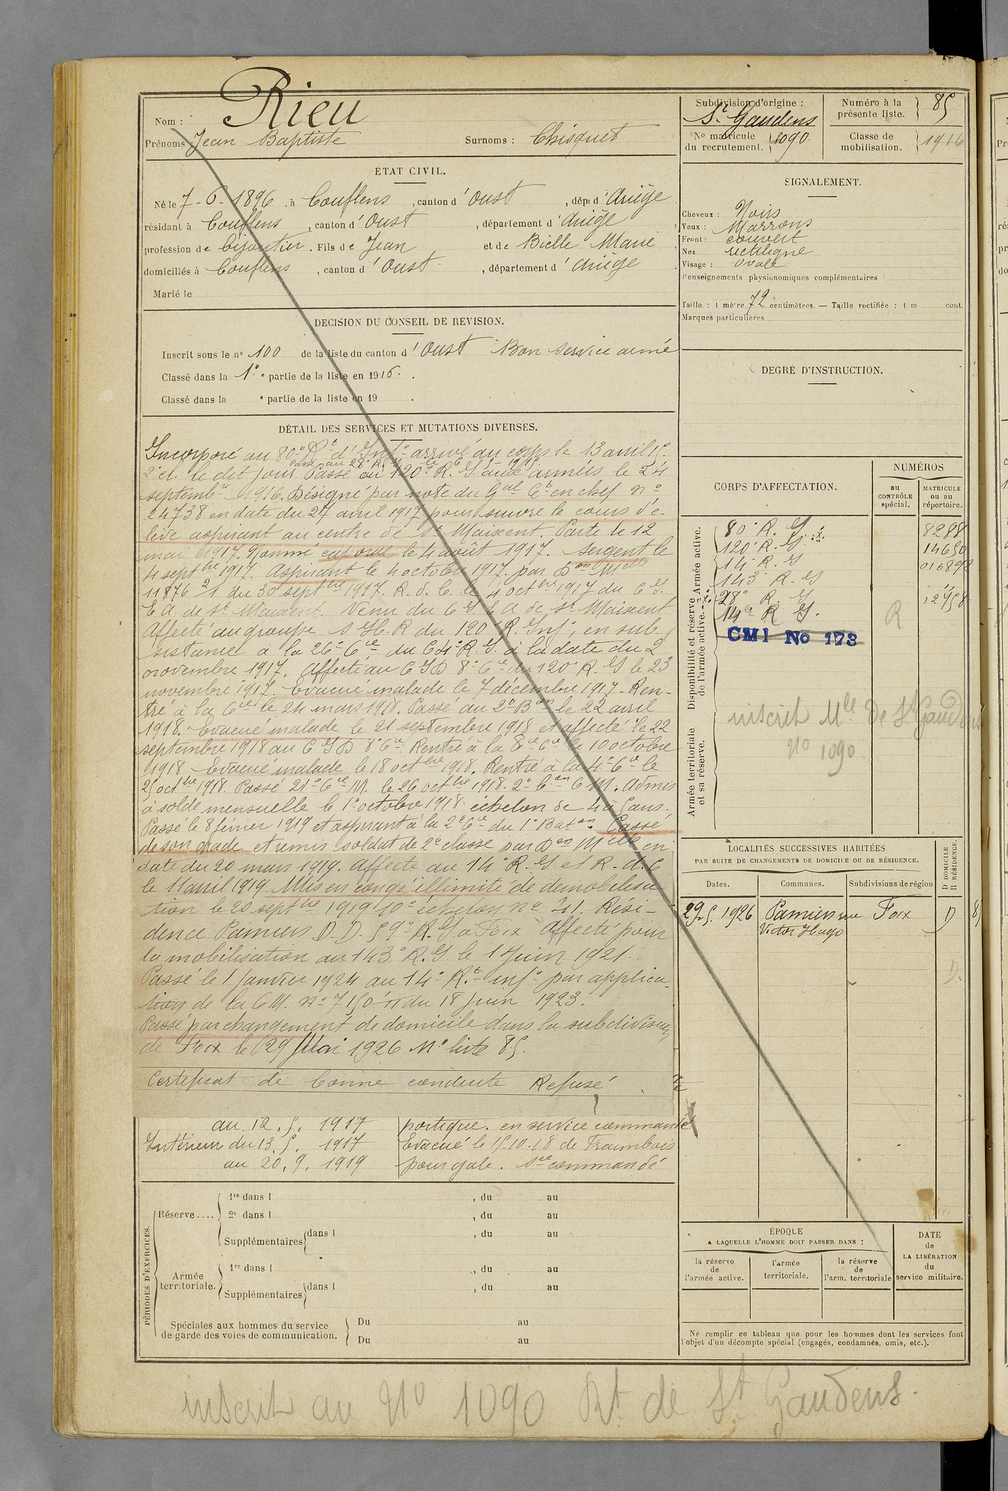 Nom : Rieu
Prénoms : Jean Baptiste Surnoms : Chisquet
ÉTAT CIVIL.
Né le 7-6-1896, à Couflens, canton d'Oust, dépt d'Ariège
résidant à Couflens, canton d'Oust, département d'Ariège
profession de bijoutier. Fils de Jean et de Bielle Marie
domiciliés à Couflens, canton d'Oust, département d'Ariège
Marié le
DÉCISION DU CONSEIL DE REVISION.
Inscrit sous le n° 100 de la liste du canton d'Oust Bon service armé
Classé dans la 1e partie de la liste en 1916.
Classé dans la e partie de la liste en 19 .
DÉTAIL DES SERVICES ET MUTATIONS DIVERSES.
Incorporé au 80e Rt d'Infie arrivé au corps le 13 avril 15.
2e cl. le dit jour. Passé au 120e R.I. aux armées le 24
Passé au 28e R.
septembre 1916. Désigné par note du Gal Ct en chef n°
24738 en date du 27 avril 1917 pour suivre le cours d'é-
lève aspirant au centre de St Maixent. Parti le 12
mai 1917. Nommé caporal le 4 août 1917. Sergent le
4 septbre 1917. Aspirant le 4 octobre 1917 par Don Mlle
11876 2/1 du 30 septbre 1917. R. d. C. le 4 octbre 1917 du C.I.
E.A. de St Maixent. Venu du C.I.E.A. de St Maixent
Affecté au groupe s. H. R du 120 R. Inf, en sub-
sistance à la 26e Cie du 64e R.I. à la date du 2
novembre 1917. Affecté au C I D 8e Cie du 120e R.I. le 23
novembre 1917. Evacué malade le 7 décembre 1917. Ren-
tré à la Cie le 24 mars 1918. Passé au 2e Bon le 22 avril
1918. Evacué malade le 21 septembre 1918 et affecté le 22
septembre 1918 au C I D 8e Cie. Rentré à la Cie le 10 octobre
1918 Evacué malade le 18 octbre 1918. Rentré à la 4e Cie le
25 octbre 1918. Passé 21e Cie M. le 26 octbre 1918. 2e Con C M. Admis
à solde mensuelle le 1er octobre 1918. échelon de 4 à 5 ans.
Passé le 8 février 1919 et aspirant à la 2e Cie du 1er Baton Cassé
de son grade et remis soldat de 2e classe par Don Mlle en
date du 20 mars 1919. Affecté au 14e R.I. et R. d. C
le 11 avril 1919. Mis en congé illimité de démobilisa-
tion le 20 septbre 1919 10e échelon n° 41. Rési-
dence Pamiers D. D. 59e R.I. à Foix Affecté pour
la mobilisation au 143e R.I. le 1er juin 1921.
Passé le 1er janvier 1924 au 14e Rt Infie par applica-
tion de la C.M. n° 7150 du 18 juin 1923.
Passé par changement de domicile dans la subdivision
de Foix le 29 Mai 1926 N° liste 85.
Certificat de bonne conduite Refusé
au 12.5. 1917 portique. en service commandé
Intérieur du 13.5. 1917 Evacué le 15.10.18 de
au 20.9. 1919 pour gale. Sce commandé
PÉRIODES D'EXERCICES.
Réserve....
1re dans l , du au
2e dans l , du au
Supplémentaires dans l , du au
Armée territoriale.
1re dans l , du au
Supplémentaires dans l , du au
Spéciales aux hommes du service
de garde des voies de communication.
Du au
Du au
Subdivision d'origine : St Gaudens
N° matricule du recrutement. 1090.
Numéro à la présente liste. 85
Classe de mobilisation. 1916
SIGNALEMENT.
Cheveux : Noirs
Yeux : Marrons
Front : couvert
Nez rectiligne
Visage : ovale
Renseignements physionomiques complémentaires
Taille : 1 mètre 72 centimètres. — Taille rectifiée : 1 m cent.
Marques particulières
DEGRÉ D'INSTRUCTION.
CORPS D'AFFECTATION.
NUMÉROS
au CONTRÔLE spécial.
MATRICULE ou au répertoire.
Disponibilité et réserve de l'armée active. Armée active.
80e R.I. 8288
120e R.I. 14650
14e R.I. 016892
143e R.I.
28e R.I. 12958
14e R.I.
R
CMI No 173
Armée territoriale et sa réserve.
inscrit Mle de St Gaudens
N° 1090
LOCALITÉS SUCCESSIVES HABITÉES
PAR SUITE DE CHANGEMENTS DE DOMICILE OU DE RÉSIDENCE.
D DOMICILE
R RÉSIDENCE.
Dates. Communes. Subdivisions de région
29.5.1926 Pamiers rue Foix D
Victor Hugo
D.
ÉPOQUE
A LAQUELLE L'HOMME DOIT PASSER DANS :
la réserve de l'armée active.
l'armée territoriale.
la réserve de l'arm. territoriale
DATE de LA LIBÉRATION du service militaire.
Ne remplir ce tableau que pour les hommes dont les services font
l'objet d'un décompte spécial (engagés, condamnés, omis, etc.).
inscrit au N° 1090 Rt de St Gaudens.